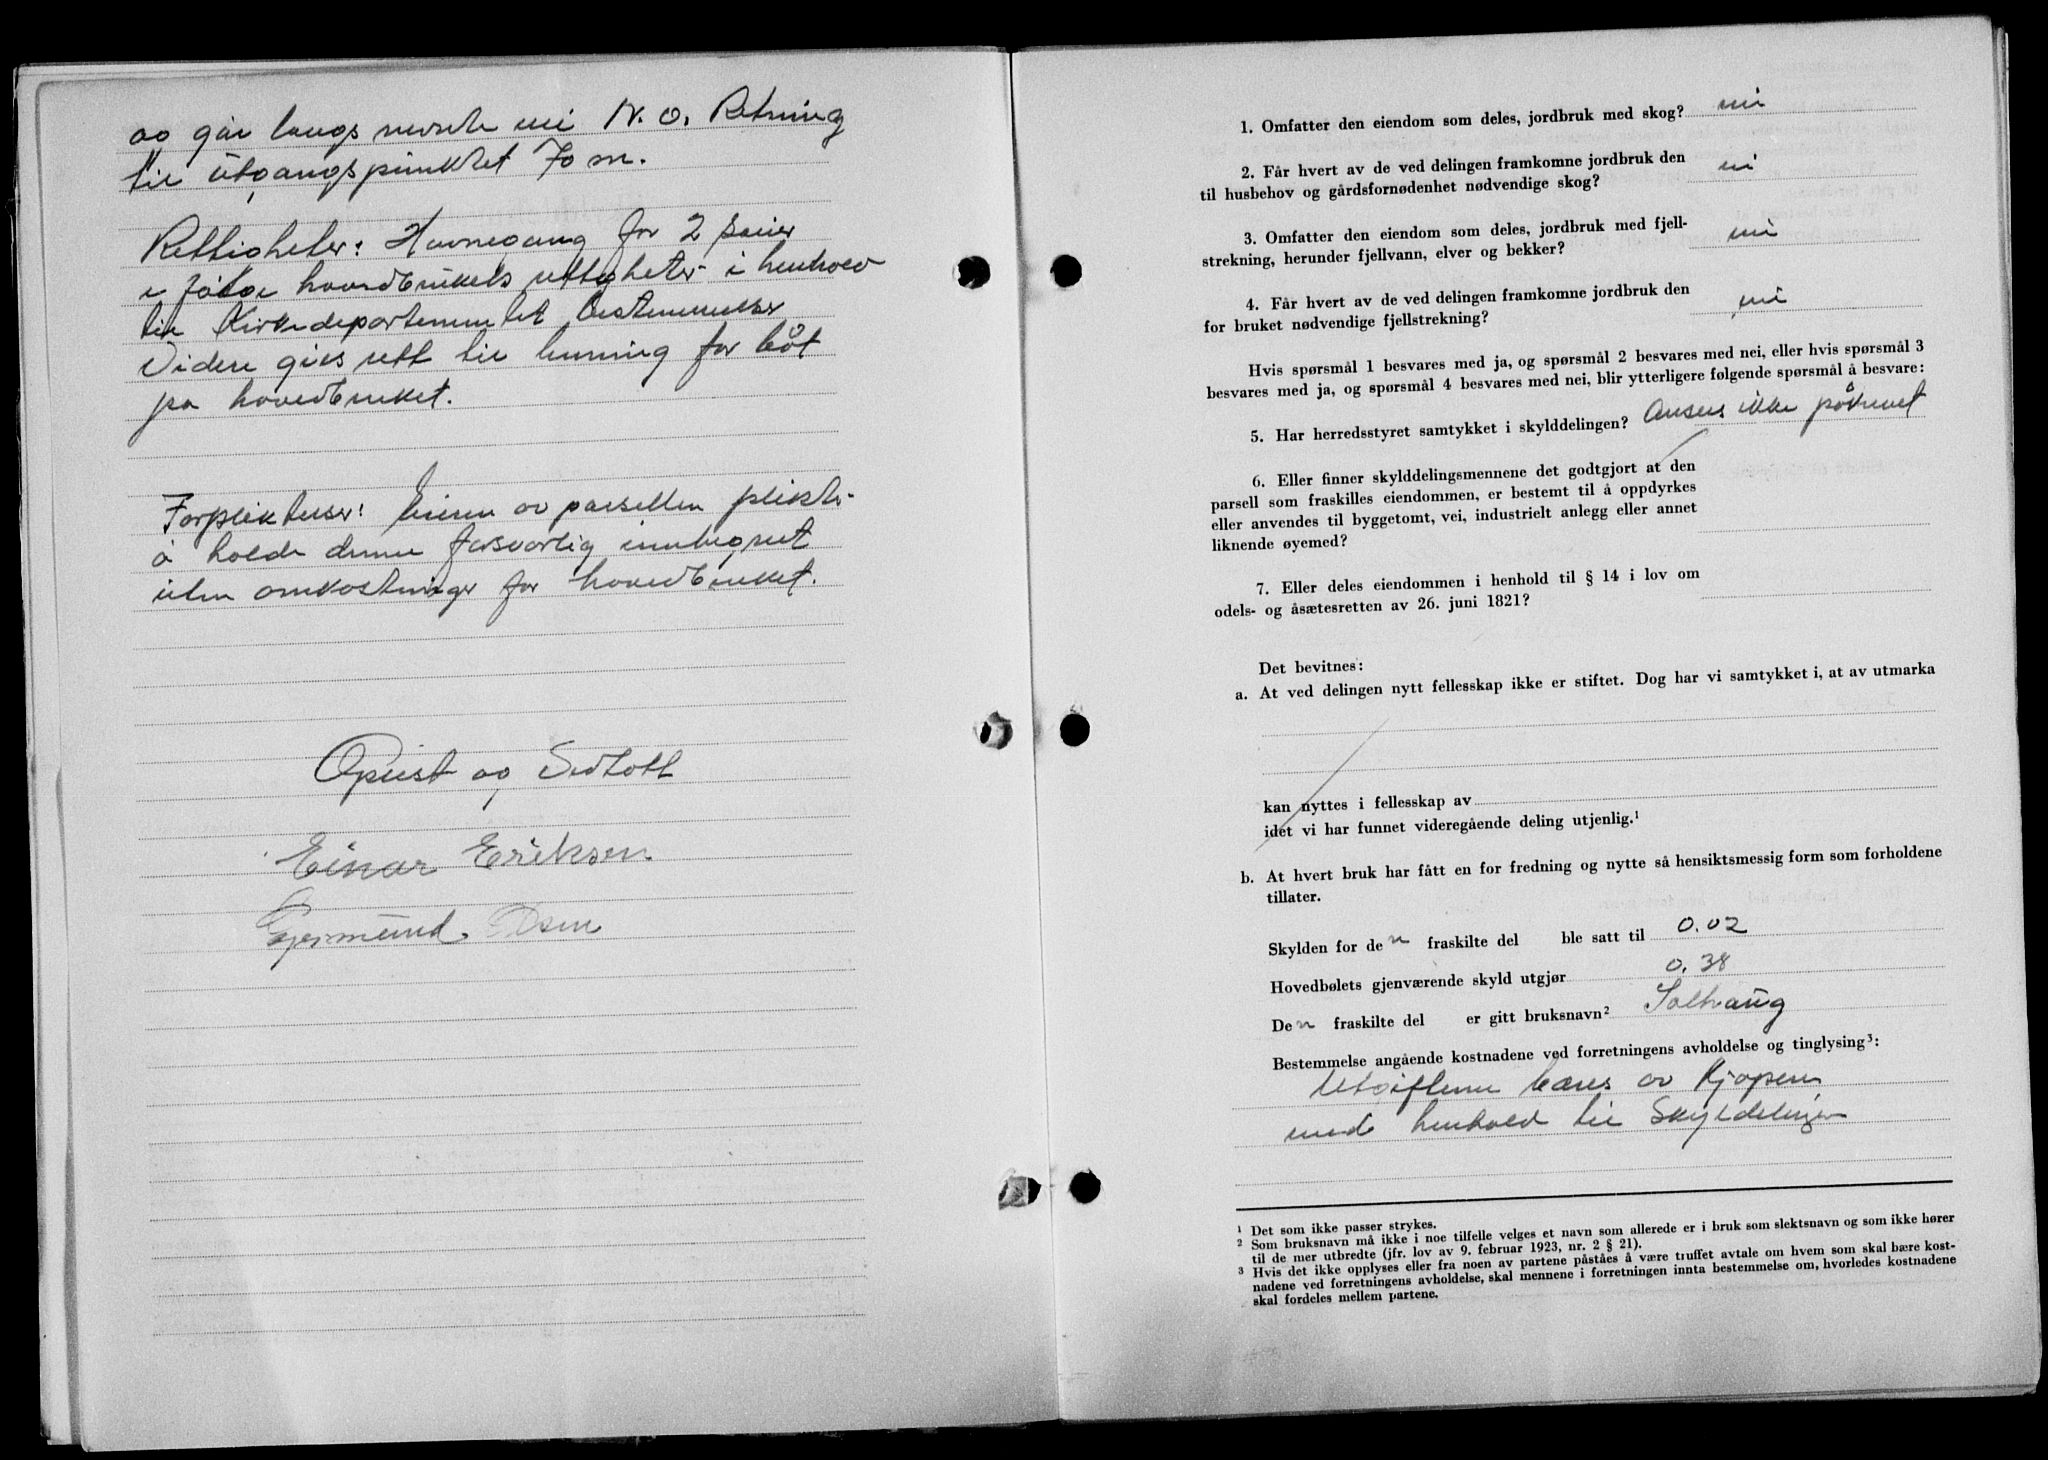 og går langs nevnte vei N.O. Retning
til utgangspunktet 70 m.
Rettigheter: Havnegang for 2 sauer
i følge hovedbrukets rettigheter i henhold
til Kirkedepartementet bestemmelser
Videre gies rett til lunning for båt
på hovedbruket.
Forpliktelser: Eieren av parsellen plikter
å holde denne forsvarlig innhegnet
uten omkostninger for hovedbruket.
Oplest og Vedtatt
Einar Eriksen
Germund Olsen
1. Omfatter den eiendom som deles, jordbruk med skog? nei
2. Får hvert av de ved delingen framkomne jordbruk den
til husbehov og gårdsfornødenhet nødvendige skog? nei
3. Omfatter den eiendom som deles, jordbruk med fjell-
strekning, herunder fjellvann, elver og bekker? nei
4. Får hvert av de ved delingen framkomne jordbruk den
for bruket nødvendige fjellstrekning? nei
Hvis spørsmål 1 besvares med ja, og spørsmål 2 besvares med nei, eller hvis spørsmål 3
besvares med ja, og spørsmål 4 besvares med nei, blir ytterligere følgende spørsmål å besvare:
5. Har herredsstyret samtykket i skylddelingen? Ansees ikke påkrevet
6. Eller finner skylddelingsmennene det godtgjort at den
parsell som fraskilles eiendommen, er bestemt til å oppdyrkes
eller anvendes til byggetomt, vei, industrielt anlegg eller annet
liknende øyemed?
7. Eller deles eiendommen i henhold til § 14 i lov om
odels- og åsætesretten av 26. juni 1821?
Det bevitnes:
a. At ved delingen nytt fellesskap ikke er stiftet. Dog har vi samtykket i, at av utmarka
kan nyttes i fellesskap av
idet vi har funnet videregående deling utjenlig.¹
b. At hvert bruk har fått en for fredning og nytte så hensiktsmessig form som forholdene
tillater.
Skylden for den fraskilte del ble satt til 0.02
Hovedbølets gjenværende skyld utgjør 0.38
Den fraskilte del er gitt bruksnavn² Solhaug
Bestemmelse angående kostnadene ved forretningens avholdelse og tinglysing³:
Utgiftene bæres av Kjøperen
med henhold til Skyldelingen
¹ Det som ikke passer strykes.
² Som bruksnavn må ikke i noe tilfelle velges et navn som allerede er i bruk som slektsnavn og som ikke hører
til de mer utbredte (jfr. lov av 9. februar 1923, nr. 2 § 21).
³ Hvis det ikke opplyses eller fra noen av partene påståes å være truffet avtale om hvem som skal bære kost-
nadene ved forretningens avholdelse, skal mennene i forretningen innta bestemmelse om, hvorledes kostnadene
skal fordeles mellem partene.